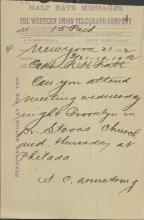 HALF RATE MESSAGES.
THE WESTERN UNION TELEGRAPH COMPANY
15 Paid
New York 21-2
Capt R H Pratt
Can you attend
meeting wednesday
night Brooklyn in
Dr. Storrs Church
and thursday at
Philada.
S. C. Armstrong